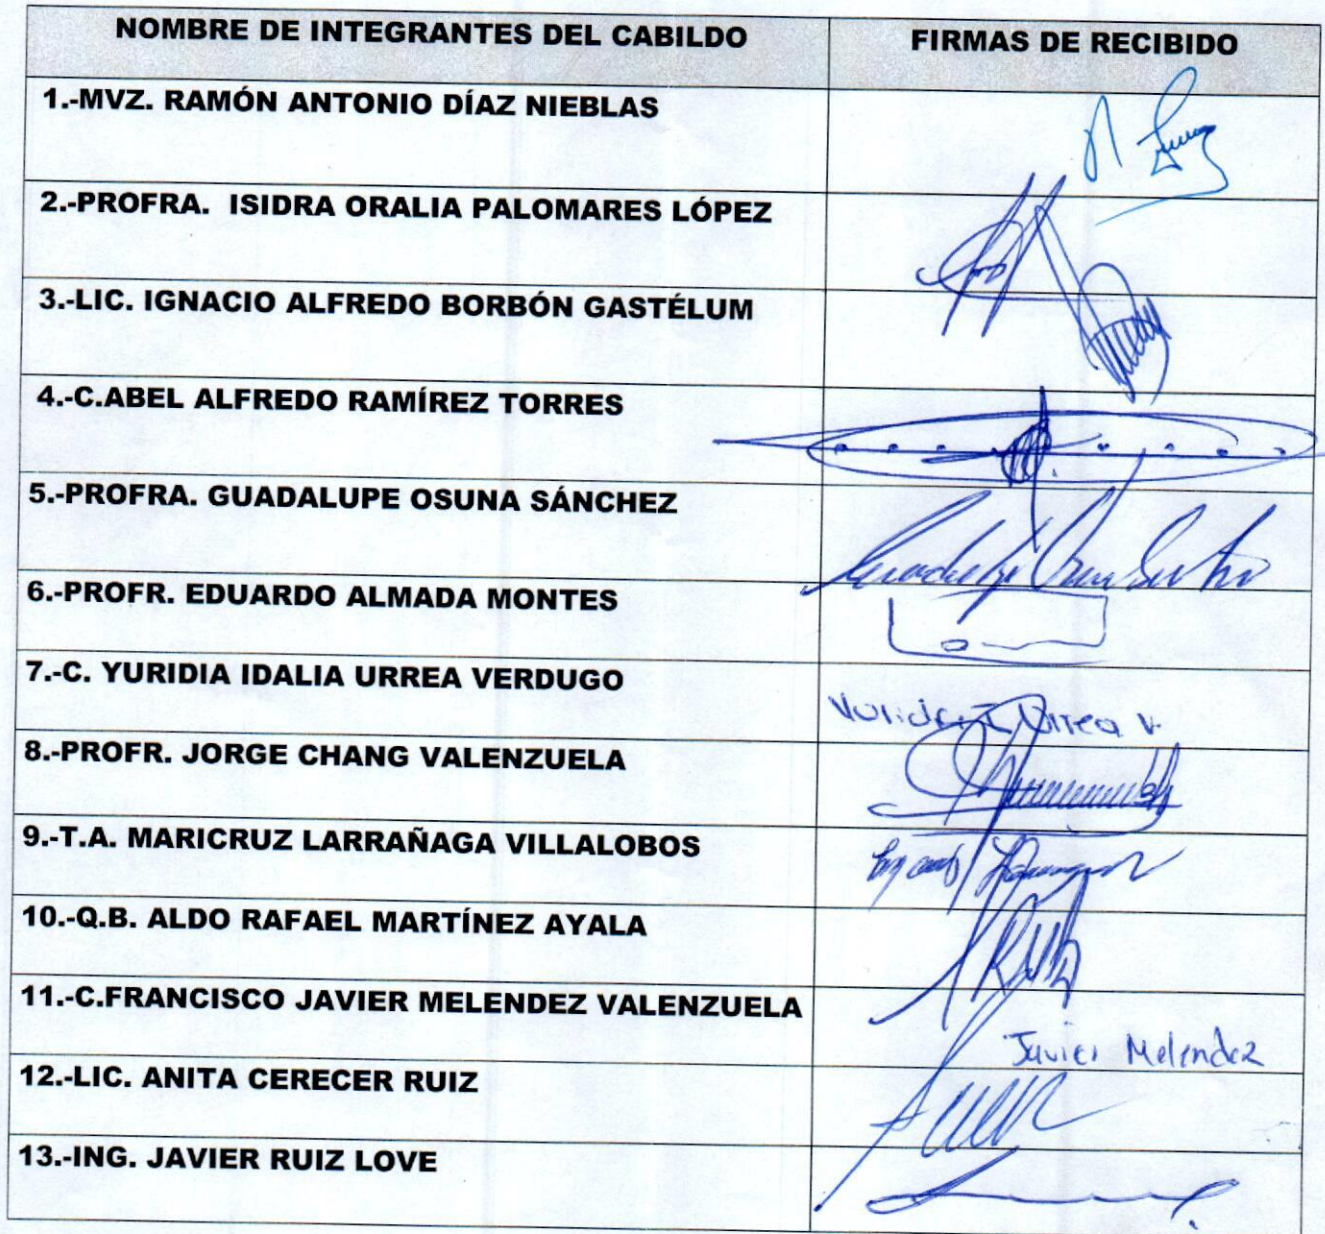 NOMBRE DE INTEGRANTES DEL CABILDO
FIRMAS DE RECIBIDO
1.-MVZ. RAMÓN ANTONIO DÍAZ NIEBLAS
2.-PROFRA.  ISIDRA ORALIA PALOMARES LÓPEZ
3.-LIC. IGNACIO ALFREDO BORBÓN GASTÉLUM
4.-C.ABEL ALFREDO RAMÍREZ TORRES
5.-PROFRA. GUADALUPE OSUNA SÁNCHEZ
6.-PROFR. EDUARDO ALMADA MONTES
7.-C. YURIDIA IDALIA URREA VERDUGO
8.-PROFR. JORGE CHANG VALENZUELA
9.-T.A. MARICRUZ LARRAÑAGA VILLALOBOS
10.-Q.B. ALDO RAFAEL MARTÍNEZ AYALA
11.-C.FRANCISCO JAVIER MELENDEZ VALENZUELA
Javier Melendez
12.-LIC. ANITA CERECER RUIZ
13.-ING. JAVIER RUIZ LOVE